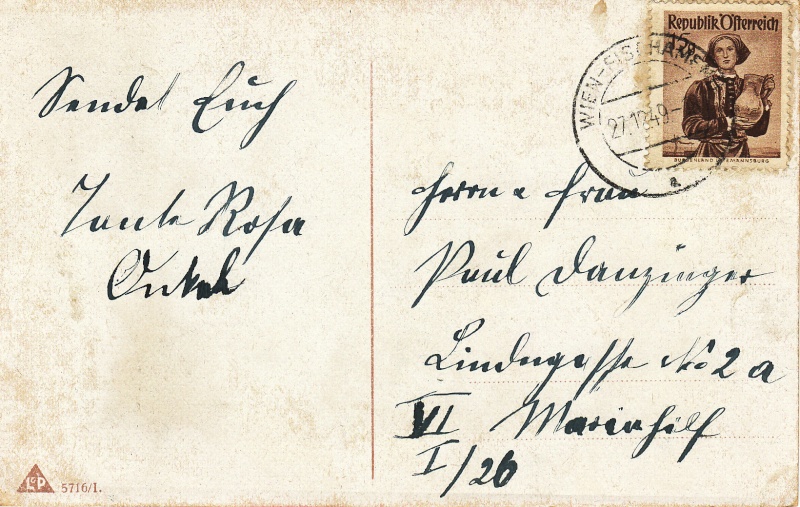 Sendet Euch
Tante Rosa
Onkel
Republik Österreich
WIEN-EISCHAMEND
27.12.49
BURGENLAND LUTZMANNSBURG
a
Herrn u Frau
Paul Danzinger
Lindengasse No 2 a
VI Mariahilf
I/26
L&P
5716/I.